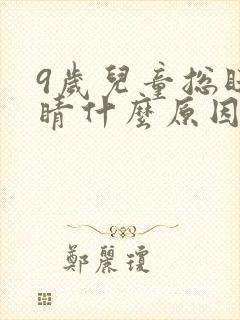 9歲兒童總眨
睛什麼原因
鄭麗瓊